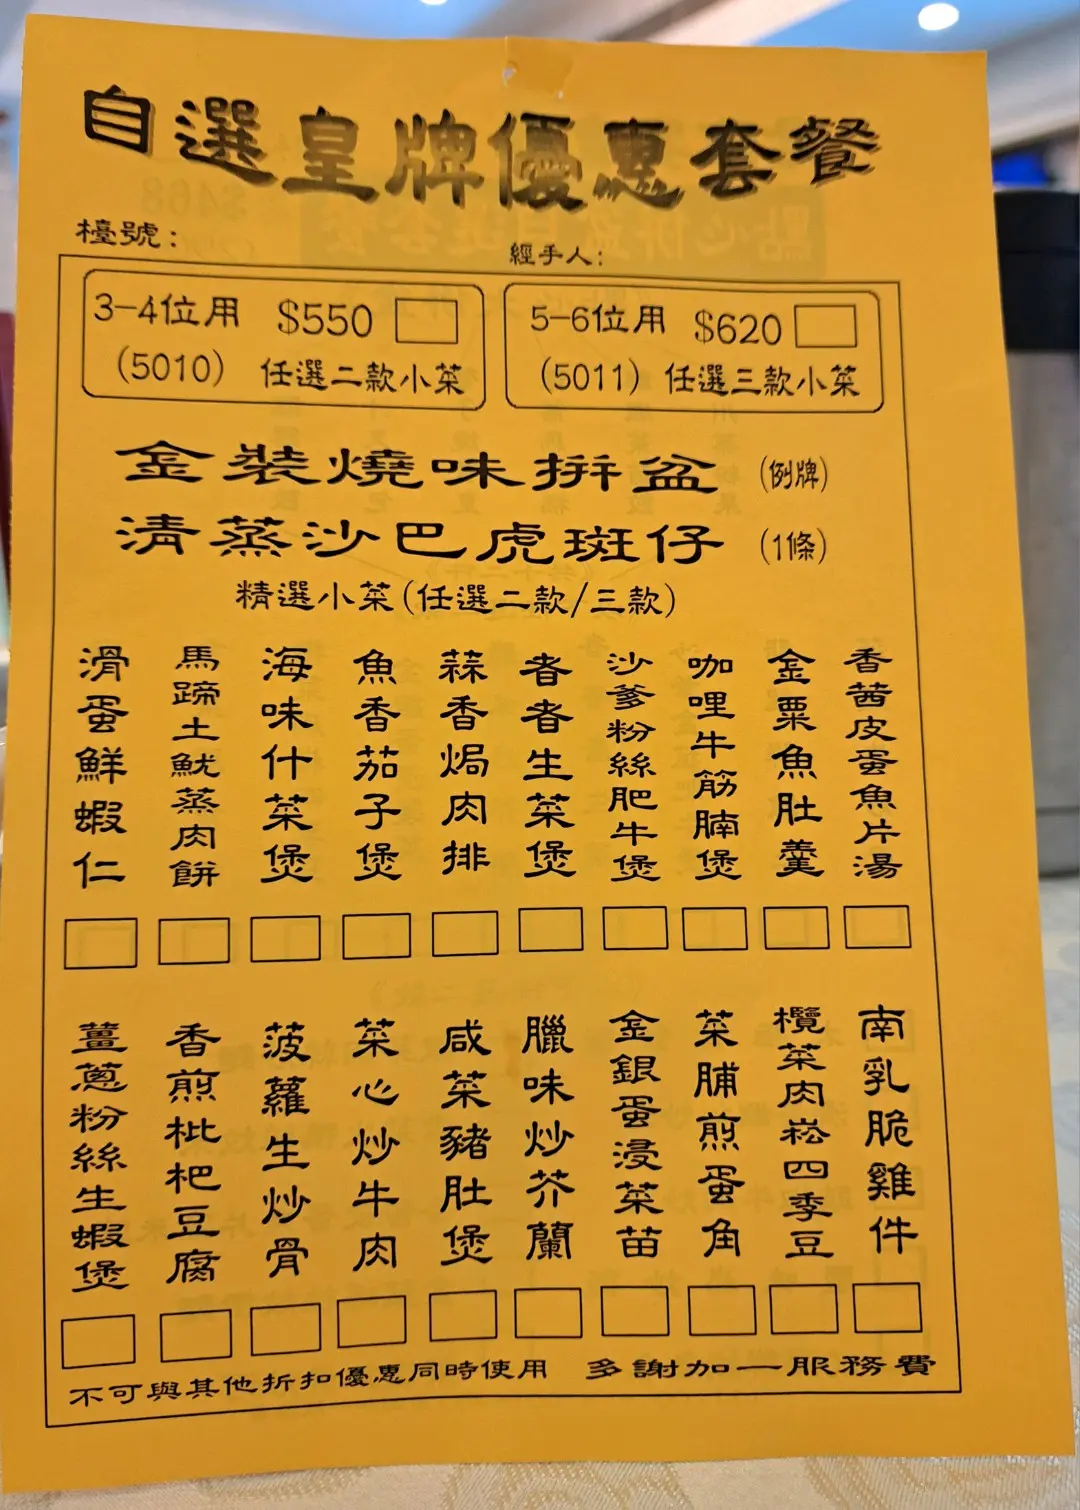 自選皇牌優惠套餐
檯號：
經手人：
3-4位用 $550
(5010) 任選二款小菜
5-6位用 $620
(5011) 任選三款小菜
金裝燒味拼盆 (例牌)
清蒸沙巴虎斑仔 (1條)
精選小菜(任選二款/三款)
香茜皮蛋魚片湯
金粟魚肚羹
咖哩牛筋腩煲
沙爹粉絲肥牛煲
啫啫生菜煲
蒜香焗肉排
魚香茄子煲
海味什菜煲
馬蹄土魷蒸肉餅
滑蛋鮮蝦仁
南乳脆雞件
欖菜肉崧四季豆
菜脯煎蛋角
金銀蛋浸菜苗
臘味炒芥蘭
咸菜豬肚煲
菜心炒牛肉
菠蘿生炒骨
香煎枇杷豆腐
薑蔥粉絲生蝦煲
不可與其他折扣優惠同時使用 多謝加一服務費